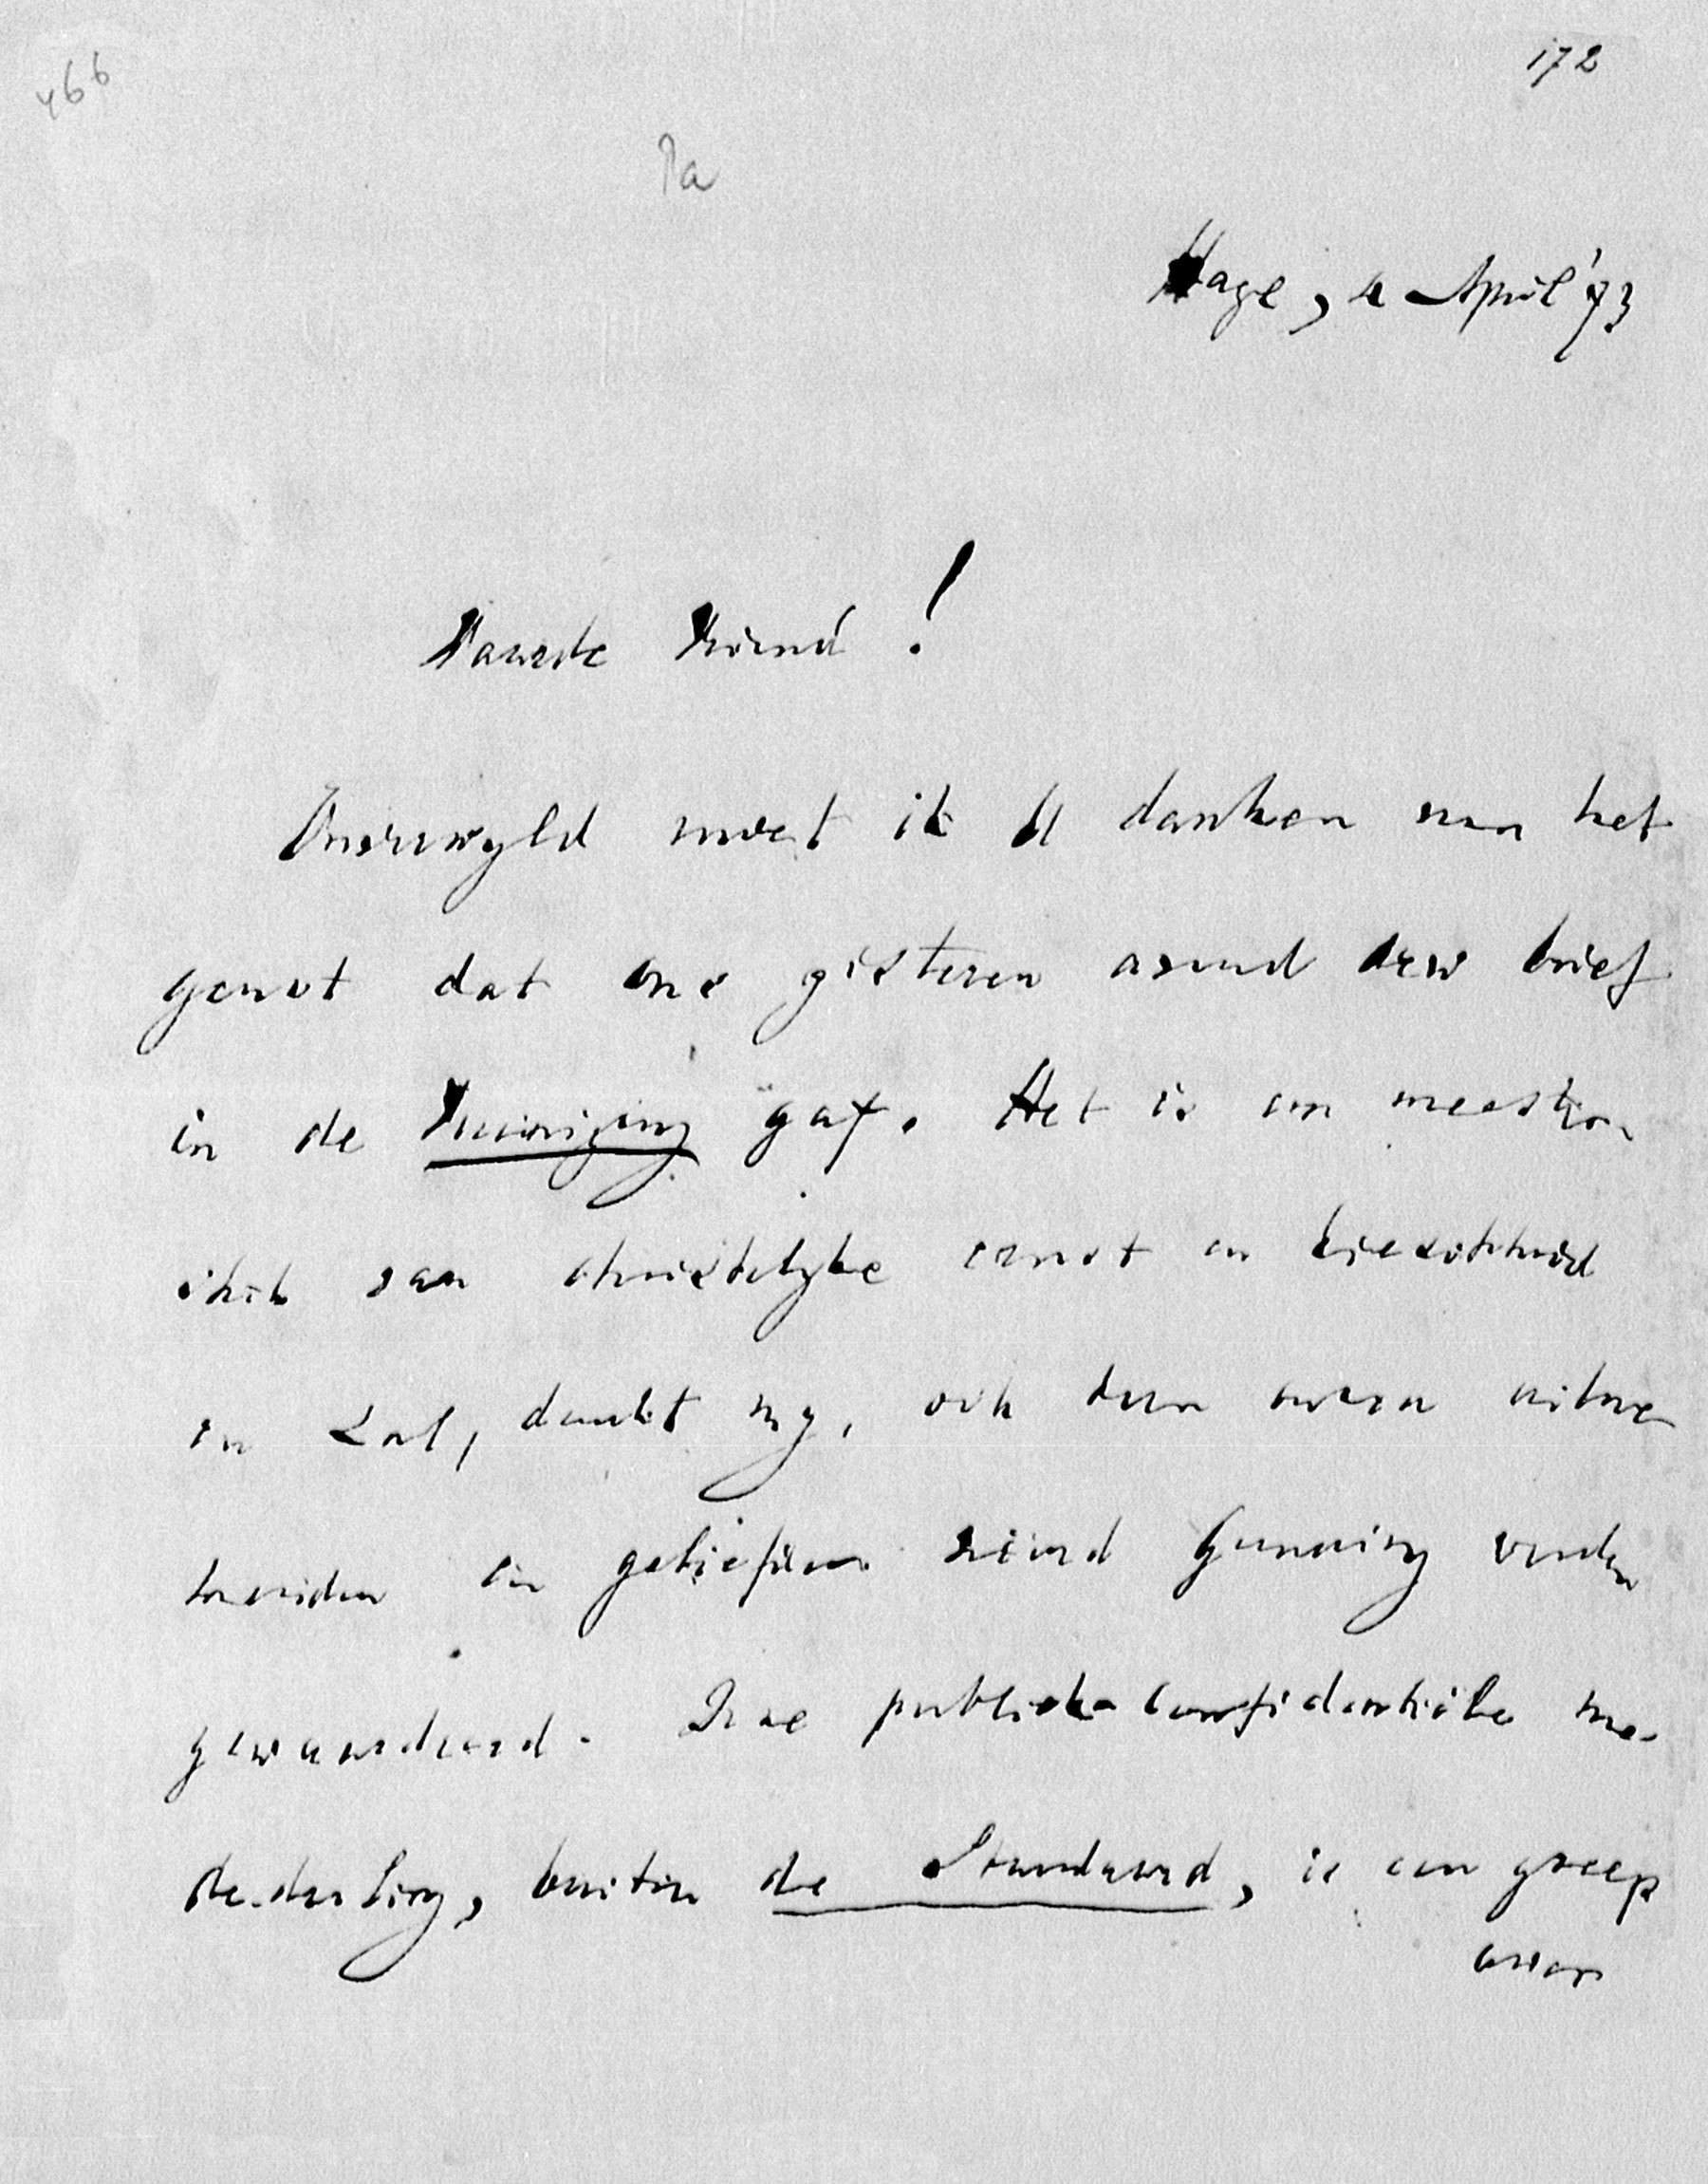 466
172
Pa
Hage, 4 April '73
Waarde Vriend!
Onverwyld moet ik U danken van het
genot dat ons gisteren avond Uw brief
in de Vereeniging gaf. Het is een meester-
stuk van christelyke ernst en kieschheid
en zal, dunkt my, ook door onzen uitne-
menden en geliefden vriend Gunning worden
gewaardeerd. Deze publiek-confidentiële me-
dedeeling, buiten de Standaard, is een greep
waar